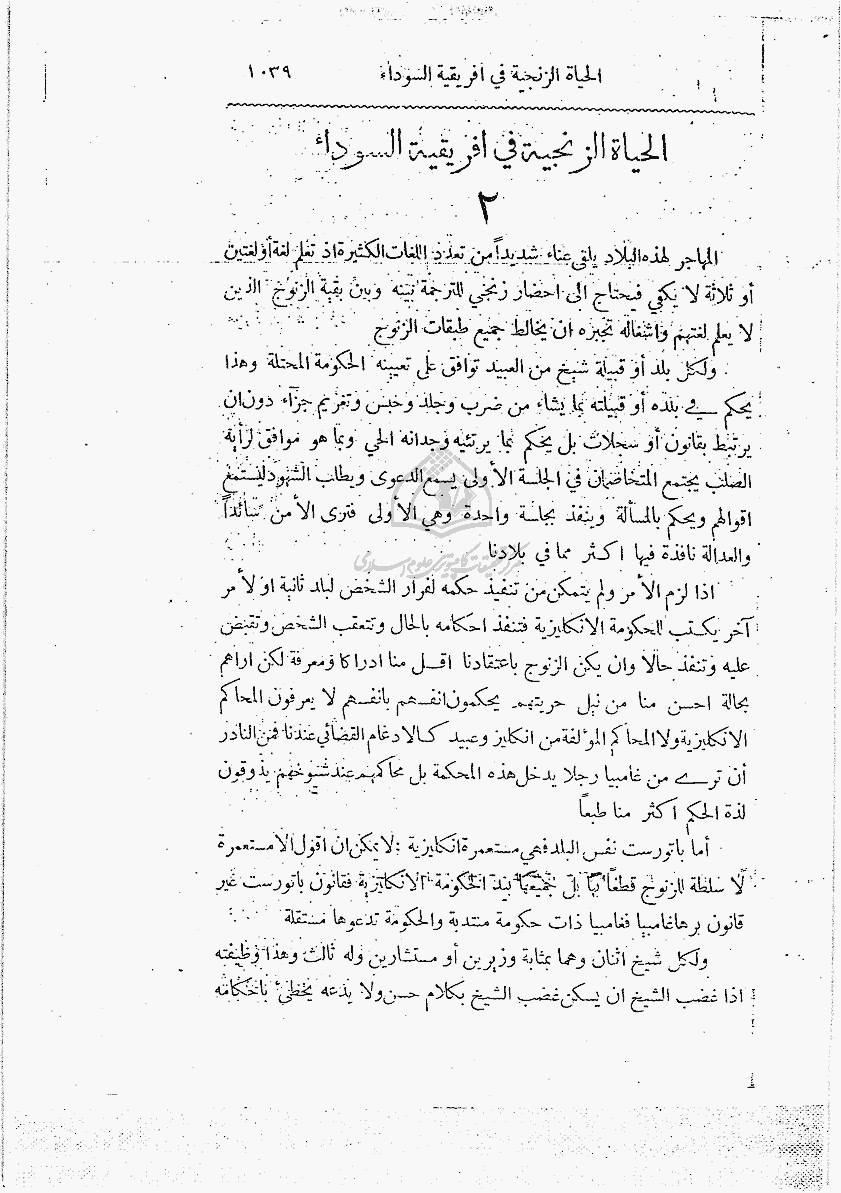 الحياة الزنجية في افريقية السوداء ١٠٣٩
الحياة الزنجية في افريقية السوداء
٢
المهاجر لهذه البلاد يلقى عناء شديداً من تعدد اللغات الكثيرة اذ تعلم لغة أو لغتين
أو ثلاثة لا يكفي فيحتاج الى احضار زنجي للترجمة بينه وبين بقية الزنوج الذين
لا يعلم لغتهم واشغاله تجبره ان يخالط جميع طبقات الزنوج
ولكل بلد أو قبيلة شيخ من العبيد توافق على تعيينه الحكومة المحتلة وهذا
يحكم في بلده أو قبيلته بما يشاء من ضرب وجلد وحبس وتغريم جزآء دون ان
يرتبط بقانون أو سجلات بل يحكم بما يرتئيه وجدانه الحي وبما هو موافق لرأيه
الصلب يجتمع المتخاصمان في الجلسة الأولى يسمع الدعوى ويطلب الشهود ليستمع
اقوالهم ويحكم بالمسألة وينفذ بجلسة واحدة وهي الأولى فترى الأمن سائداً
والعدالة نافذة فيها اكثر مما في بلادنا
اذا لزم الأمر ولم يتمكن من تنفيذ حكمه لفرار الشخص لبلد ثانية او لأمر
آخر يكتب للحكومة الانكليزية فتنفذ احكامه بالحال وتتعقب الشخص وتقبض
عليه وتنفذ حالاً وان يكن الزنوج باعتقادنا اقل منا ادراكا ومعرفة لكن اراهم
بحالة احسن منا من نيل حريتهم يحكمون انفسهم بانفسهم لا يعرفون المحاكم
الانكليزية ولا المحاكم المؤلفة من انكليز وعبيد كالادغام القضائي عندنا فمن النادر
أن ترى من غامبيا رجلا يدخل هذه المحكمة بل محاكمهم عند شيوخهم يذوقون
لذة الحكم اكثر منا طبعاً
أما باتورست نفس البلد فهي مستعمرة انكليزية لا يمكن ان اقول الا مستعمرة
لا سلطة للزنوج قطعاً بها بل جميعها بيد الحكومة الانكليزية فقانون باتورست غير
قانون برها غامبيا فغامبيا ذات حكومة منتدبة والحكومة تدعوها مستقلة
ولكل شيخ اثنان وهما بمثابة وزيرين أو مستشارين وله ثالث وهذا وظيفته
اذا غضب الشيخ ان يسكن غضب الشيخ بكلام حسن ولا يدعه يخطئ باحكامه